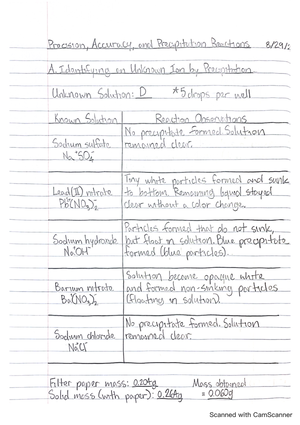 Precision, Accuracy, and Precipitation Reactions 8/29/
A. Identifying an Unknown Ion by Precipitation
Unknown Solution: D *5 drops per well
Known Solution Reaction Observations
No precipitate formed. Solution
Sodium sulfate remained clear.
Na⁺SO₄⁻
Tiny white particles formed and sunk
Lead(II) nitrate to bottom. Remaining liquid stayed
Pb(NO₃)₂ clear without a color change.
Particles formed that do not sink,
Sodium hydroxide but float in solution. Blue precipitate
Na⁺OH⁻ formed (blue particles).
Solution became opaque white
Barium nitrate and formed non-sinking particles
Ba(NO₃)₂ (floating in solution).
No precipitate formed. Solution
Sodium chloride remained clear.
Na⁺Cl⁻
Filter paper mass: 0.204g Mass obtained
Solid mass (with paper): 0.264g = 0.060g
Scanned with CamScanner